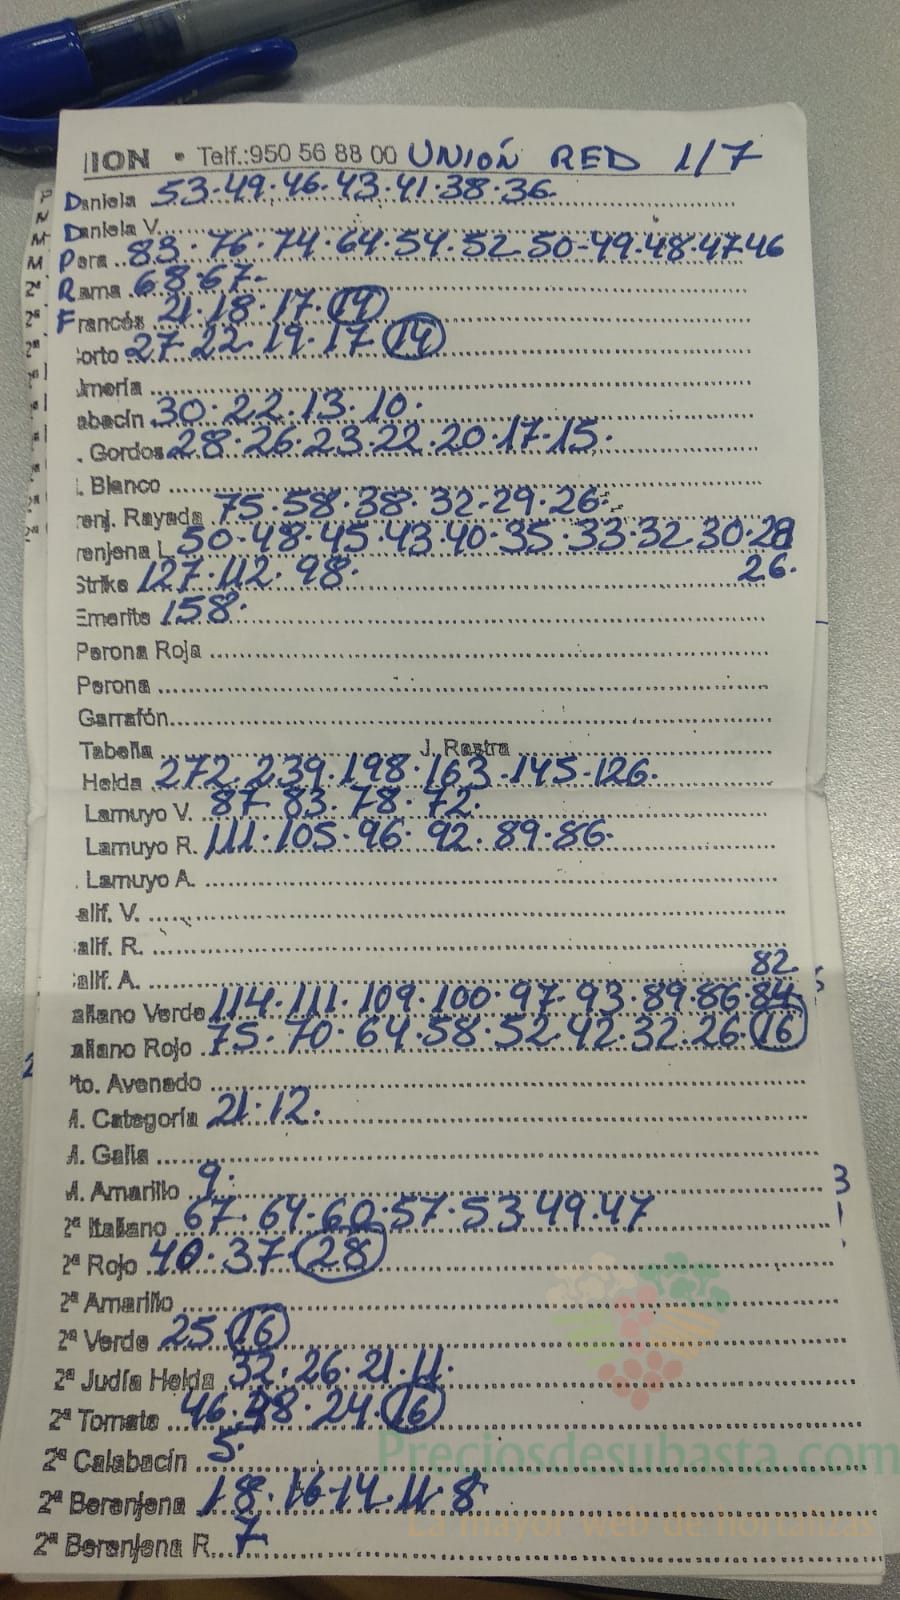 IION • Telf.:950 56 88 00 UNIÓN RED 1/7
Daniela 53.49.46.43.41.38.36.
Daniela V.
Pera 83.76.74.64.54.52.50-49.48.47.46
Rama 68.67.
Francés 21.18.17.(14)
orto 27.22.19.17.(14)
lmería
abacín 30.22.13.10.
. Gordos 28.26.23.22.20.17.15.
. Blanco
renj. Rayada 75.58.38.32.29.26.
renjena L. 50.48.45.43.40.35.33.32.30.28
26.
Strike 127.112.98.
Emerite 158.
Perona Roja
Perona
Garrafón
Tabella J. Rastra
Helda 272.239.198.163.145.126.
Lamuyo V. 87.83.78.72.
Lamuyo R. 111.105.96.92.89.86.
. Lamuyo A.
alif. V.
alif. R.
82
alif. A.
aliano Verde 114.111.109.100.97.93.89.86.84
aliano Rojo 75.70.64.58.52.42.32.26.(16)
to. Avenado
A. Categoría 21.12.
A. Galia
A. Amarillo 9.
2ª Italiano 67.64.60.57.53.49.47
2ª Rojo 40.37.(28)
2ª Amarillo
2ª Verde 25.(16)
2ª Judía Helda 32.26.21.11.
2ª Tomate 46.38.24.(16)
2ª Calabacín 5.
2ª Berenjena 18.16.14.11.8
2ª Berenjena R. 7
Preciosdesubasta.com
La mayor web de hortalizas